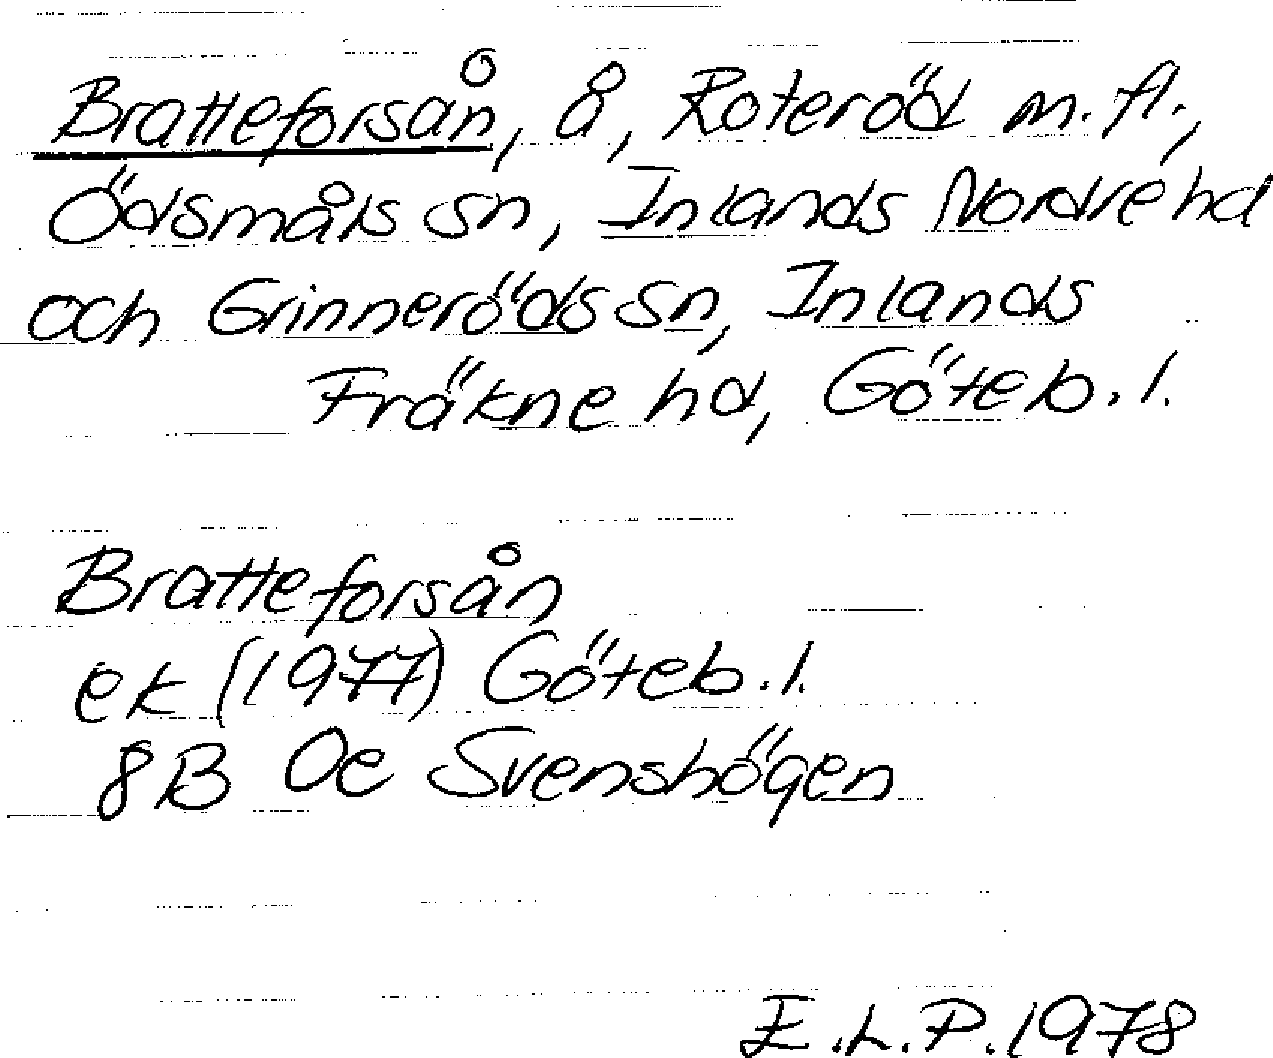 Bratteforsån, å, Roteröd m.fl.,
Ödsmåls sn, Inlands Nordre hd
och Grinneröds sn, Inlands
Fräkne hd, Göteb.l.
Bratteforsån
ek (1977) Göteb.l.
8B 0e Svenshögen
E.L.P. 1978